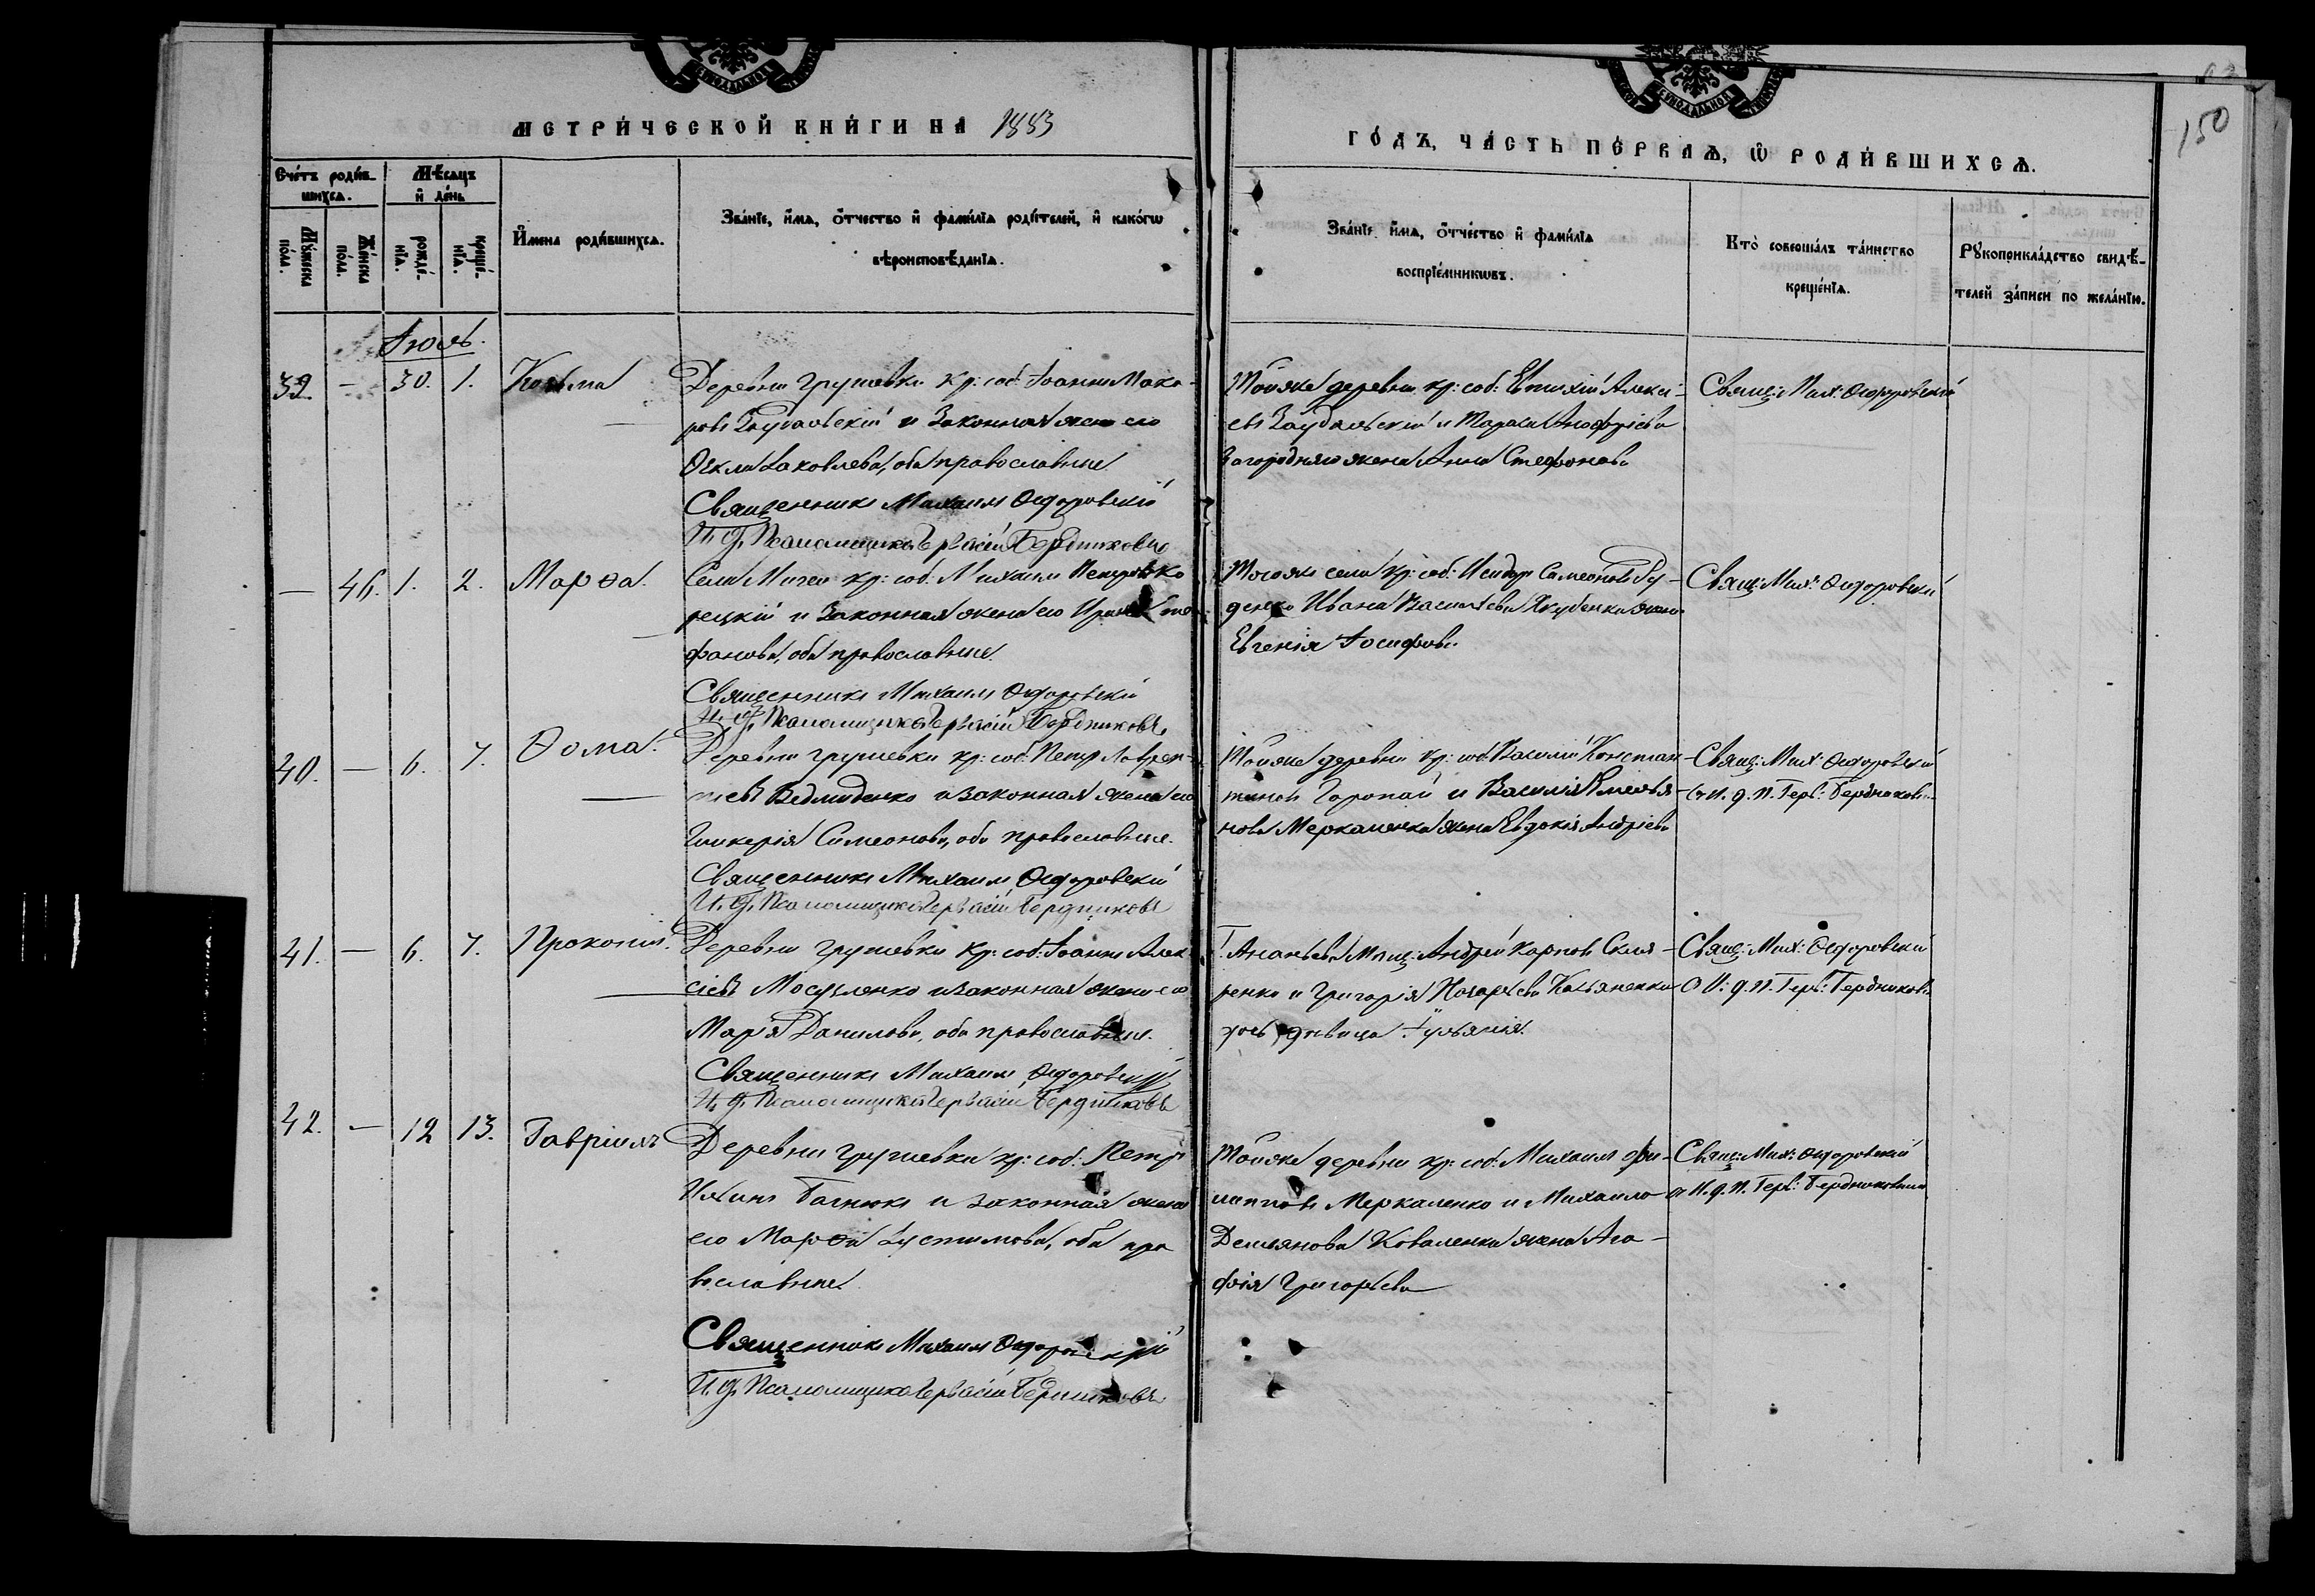 МЕТРИ́ЧЕСКОЙ КНИ́ГИ НА 1883
ГО́ДЪ, ЧА́СТЬ ПЕ́РВАѦ, Ѡ РОДИ́ВШИХСѦ.
150
Сче́тъ роди́в-
шихсѧ.
Мѣ́сѧцъ
и҆ де́нь
Мꙋ́жеска по́ла.
Же́нска по́ла.
рожде́-
нїѧ.
креще́-
нїѧ.
И҆мена роди́вшихсѧ.
Зва́нїе, и҆́мѧ, ѻ҆́тчество и҆ фами́лїѧ роди́телей, и҆ како́гѡ
вѣроисповѣ́данїѧ.
Зва́нїе, и҆́мѧ, ѻ҆́тчество и҆ фами́лїѧ
воспрїе́мникѡвъ.
Кто̀ соверша́лъ та́инство
креще́нїѧ.
Рꙋкоприкла́дство свидѣ́-
телей за́писи по жела́нїю.
Іюль.
39. — 30. 1. Козьма
Деревни Грушевки кр: соб: Іоаннъ Мака-
ровъ и законная жена его
Ѳекла Яковлева, оба православные
Священникъ Михаилъ Ѳедоровскій
И. д. Псаломщика Гервасій Бердниковъ
Той же деревни кр: соб: Евтихій Алексі-
евъ и Тараси Анофріева
Загородняго жена Анна Стефанова
Свящ: Мих: Ѳедоровскій
— 46. 1. 2. Марѳа.
Села кр: соб: Михаилъ
рецкій и законная жена его Ирина
фанова, оба православные.
Священникъ Михаилъ Ѳедоровскій
И. д. Псаломщика Гервасій Бердниковъ
Того же села кр: соб: Исидоръ Симеоновъ Ру-
денко Ивана Васильева Якубенка жена
Евгенія Іосифова
Свящ: Мих: Ѳедоровскій
40. — 6. 7. Ѳома.
Деревни Грушевки кр: соб: Петръ Лаврен-
тіевъ Ведмиденко и законная жена его
Гликерія Симеонова, оба православные.
Священникъ Михаилъ Ѳедоровскій
И. д. Псаломщика Гервасій Бердниковъ
Той же деревни кр: соб: Василій Констан-
тиновъ Горопай и Василія Емелья-
нова Меркаленка жена Евдокія Андріева
Свящ: Мих: Ѳедоровскій
съ И. д. П. Герв: Бердниковъ
41. — 6. 7. Прокопій.
Деревни Грушевки кр: соб: Іоаннъ Алек-
сіевъ Мосуленко и законная жена его
Марія Данилова, оба православные.
Священникъ Михаилъ Ѳедоровскій
И. д. Псаломщика Гервасій Бердниковъ
Г. Ананьева Мѣщ: Андрей Карповъ Скля-
ренко и Григорія Касьяненка
дочь дѣвица Іуліанія.
Свящ: Мих: Ѳедоровскій
съ И: д. П. Герв: Бердниковъ
42. — 12 13. Гавріилъ
Деревни Грушевки кр: соб: Петръ
Ильинъ Багнюкъ и законная жена
его Марѳа Іустинова, оба пра
вославные
Священникъ Михаилъ Ѳедоровскій
И. д. Псаломщика Гервасій Бердниковъ
Той же деревни кр: соб: Михаилъ Фи-
липповъ Меркаленко и Михаила
Демьянова Коваленка жена Ага-
фія Григорьева
Свящ: Мих: Ѳедоровскій
съ И. д. П. Герв: Бердниковымъ